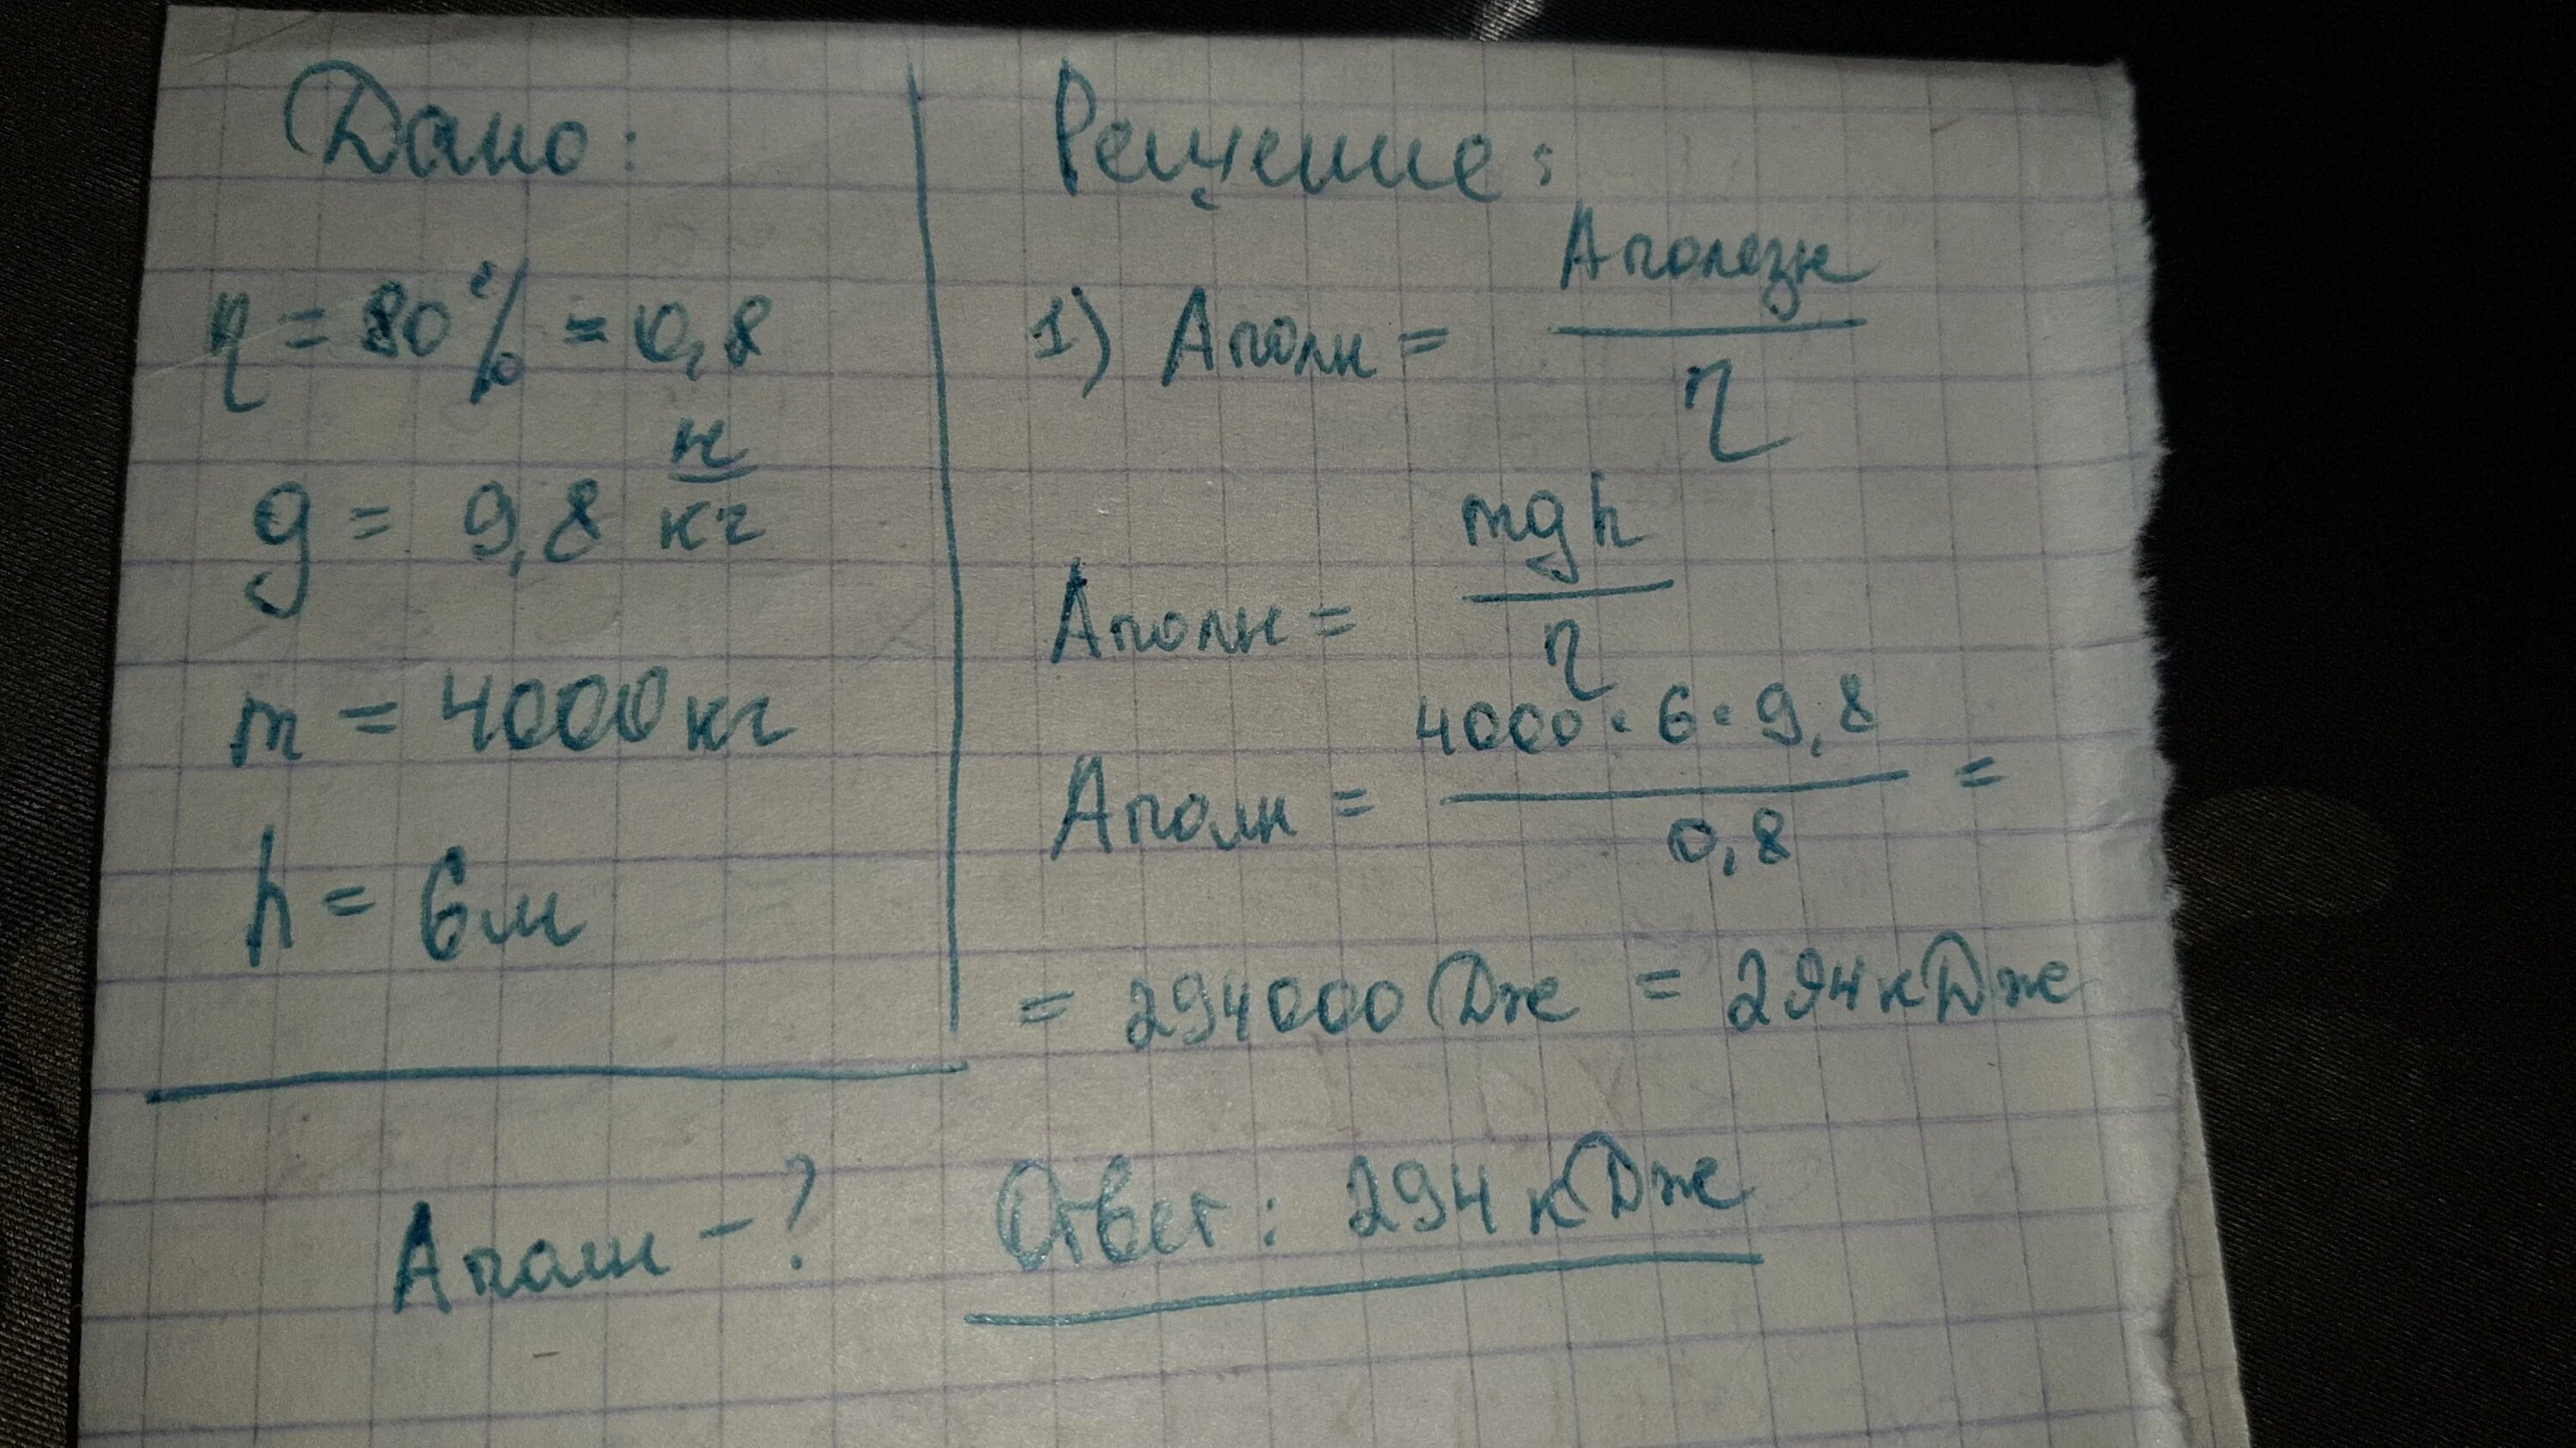 Дано:
η = 80% = 0,8
g = 9,8 н/кг
m = 4000 кг
h = 6 м
Aполн - ?
Решение:
1) Aполн = Aполезн / η
Aполн = mgh / η
Aполн = 4000 · 6 · 9,8 / 0,8 =
= 294000 Дж = 294 кДж
Ответ: 294 кДж